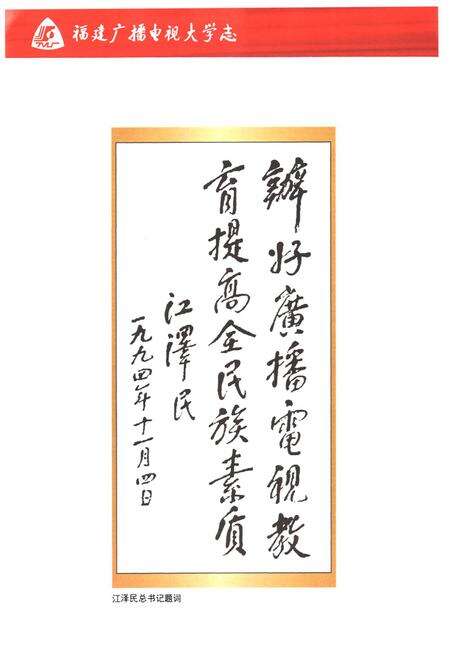 福建广播电视大学志
辦好廣播電視教
育提高全民族素质
江澤民
一九九四年十一月四日
江泽民总书记题词